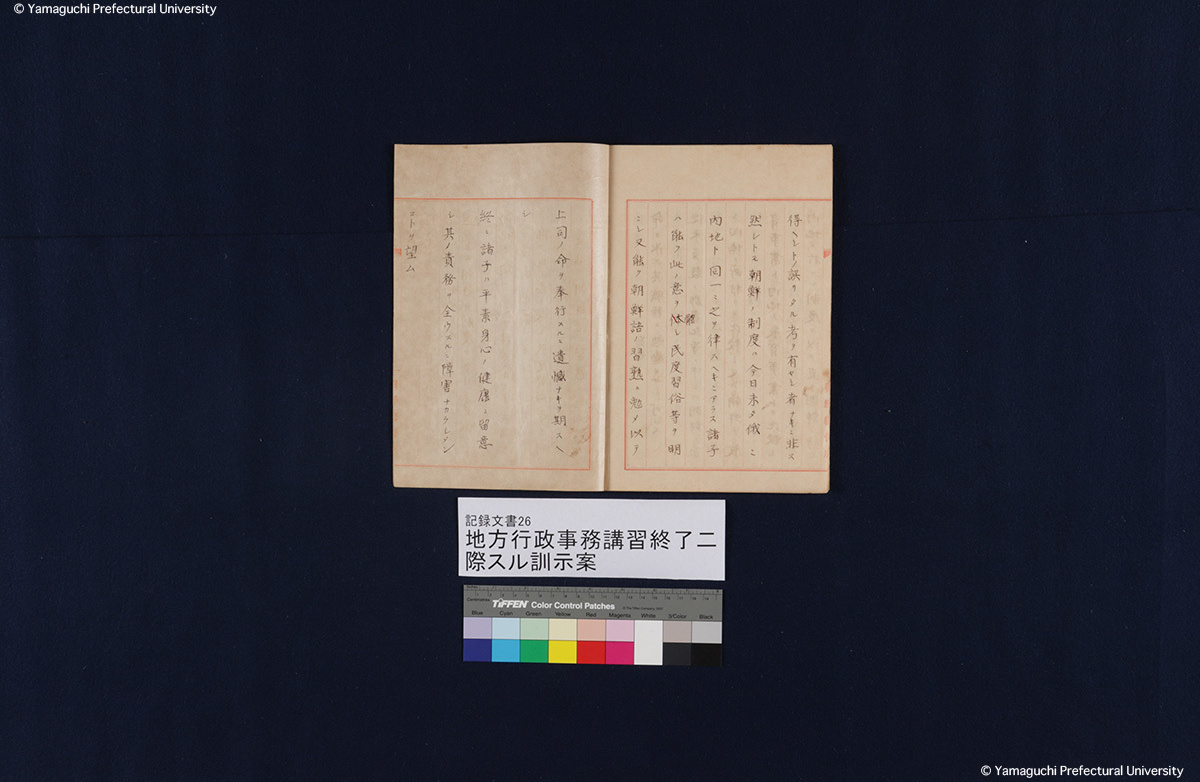 © Yamaguchi Prefectural University
得ヘシトノ誤リタル考ヲ有セシ者ナキニ非ス
然レトモ朝鮮ノ制度ハ今日未タ俄ニ
内地ト同一ニ之ヲ律スヘキニアラス諸子
ハ能ク此ノ意ヲ体體シ民度習俗等ヲ明
ニシ又能ク朝鮮語ノ習熟ヲ勉メ以テ
上司ノ命ヲ奉行スルニ遺憾ナキヲ期スヘ
シ
終ニ諸子ハ平素身心ノ健康ニ留意
シ其ノ責務ヲ全ウスルニ障害ナカラシメン
コトヲ望ム
記録文書26
地方行政事務講習終了ニ
際スル訓示案
TIFFEN Color Control Patches
© The Tiffen Company, 2007
Blue Cyan Green Yellow Red Magenta White 3/Color Black
© Yamaguchi Prefectural University